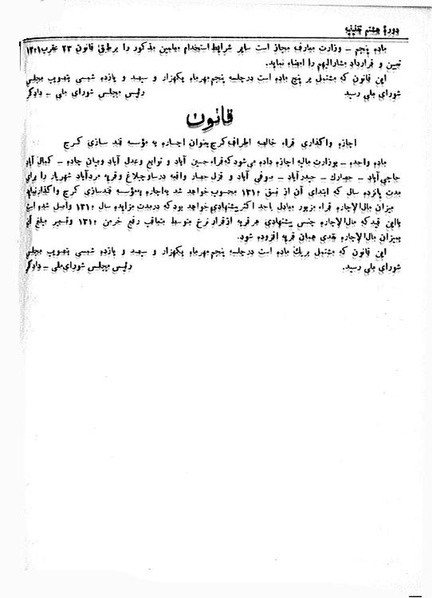 دورهٔ هشتم تقنینیه
ماده پنجم - وزارت معارف مجاز است سایر شرایط استخدام معلمین مذکور را بر طبق قانون ۲۳ عقرب ۱۳۰۱
تعیین و قرارداد مشارالیهم را امضاء نماید.
این قانون که مشتمل بر پنج ماده است در جلسه پنجم مهرماه یکهزار و سیصد و یازده شمسی بتصویب مجلس
شورای ملی رسید رئیس مجلس شورای ملی - دادگر
قانون
اجازه واگذاری قراء خالصه اطراف کرج بعنوان اجاره به مؤسسه قند سازی کرج
ماده واحده - بوزارت مالیه اجازه داده میشود که قراء حسین آباد و توابع و عدل آباد و میان جاده - کمال آباد
حاجی آباد - حیدر آباد - صوفی آباد و قزل حصار واقعه در ساوجبلاغ و قریه مردآباد شهریار را برای
مدت پانزده سال که ابتدای آن از فسق ۱۳۱۰ محسوب خواهد شد به اجاره به مؤسسه قند سازی کرج واگذار نماید
میزان مال الاجاره قراء مزبور معادل با حد اکثر پیشنهادی خواهد بود که در مدت مزایده سال ۱۳۱۰ واصل شده این
با این قید که مال الاجاره جنسی پیشنهادی هر قریه از قرار نرخ متوسط متعاقب رفع خرمن ۱۳۱۰ و تسعیر مبلغ آن
بمیزان مال الاجاره نقدی همان قریه افزوده شود.
این قانون که مشتمل بر یک ماده است در جلسه پنجم مهرماه یکهزار و سیصد و یازده شمسی بتصویب مجلس
شورای ملی رسید. رئیس مجلس شورای ملی - دادگر